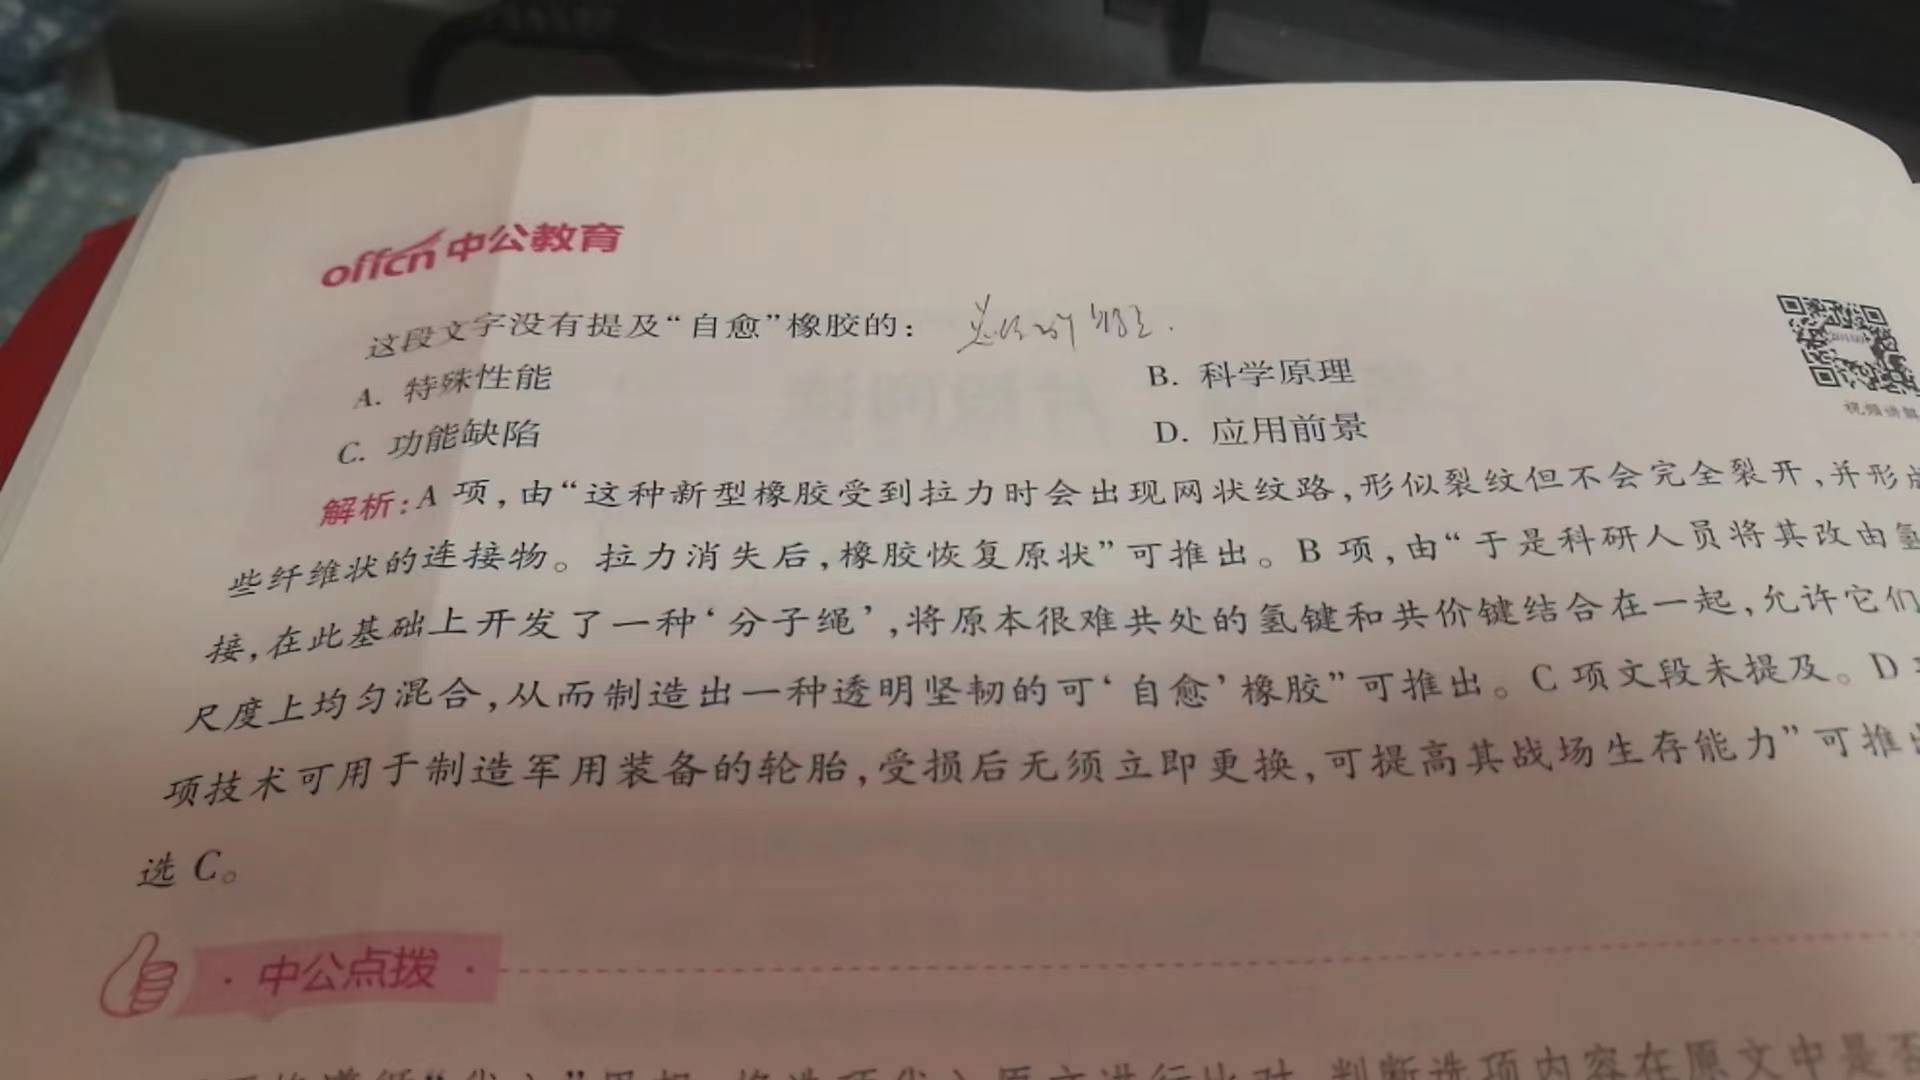 offcn中公教育
这段文字没有提及“自愈”橡胶的:
A. 特殊性能
B. 科学原理
C. 功能缺陷
D. 应用前景
视频讲解
解析:A 项,由“这种新型橡胶受到拉力时会出现网状纹路,形似裂纹但不会完全裂开,并形成
些纤维状的连接物。拉力消失后,橡胶恢复原状”可推出。B 项,由“于是科研人员将其改由氢
接,在此基础上开发了一种‘分子绳’,将原本很难共处的氢键和共价键结合在一起,允许它们
尺度上均匀混合,从而制造出一种透明坚韧的可‘自愈’橡胶”可推出。C 项文段未提及。D
项技术可用于制造军用装备的轮胎,受损后无须立即更换,可提高其战场生存能力”可推出
选 C。
·中公点拨·
原文进行比对,判断选项内容在原文中是否